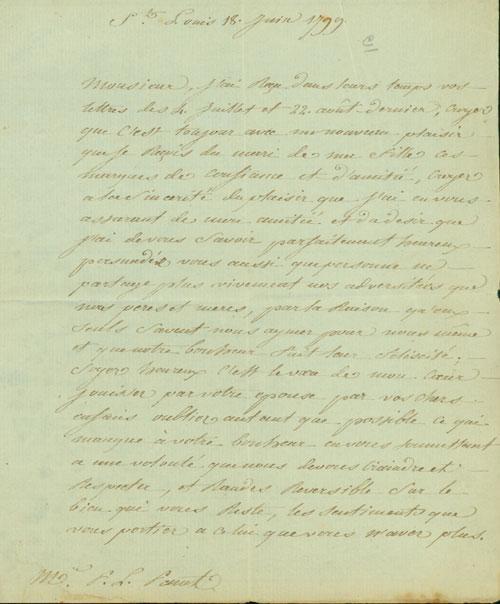 St. Louis 18. Juin 1799.
Monsieur, J'ai Reçu dans leurs temps vos
lettres des 4 Juillet et 22 août dernier, Croyez
que C'est toujour avec un nouveau plaisir
que Je Reçois du mari de ma fille ces
marques de Confiance et d'amitié, Croyez
a la Sincerité du plaisir que J'ai en vous
assurant de mon amitié et du desir que
j'ai de vous Savoir parfaitement heureux
persuadés vous aussi que personne ne
partage plus vivement nos adversitees que
nos peres et meres, par la Raison qu'eux
Seuls Savent nous aymer pour nous même
et que notre bonheur fait leur felicité.
Soyez heureux C'est le vœu de mon Cœur
Jouissez par votre epouse par vos chers
enfans oubliez autant que possible ce qui
manque à votre bonheur en vous soumettant
a une volonté que nous devons Craindre et
Respecter, et Randes Reversible Sur le
bien qui vous Reste, les sentiment que
vous portiez a celui que vous n'avez plus.
Mr. P. L.